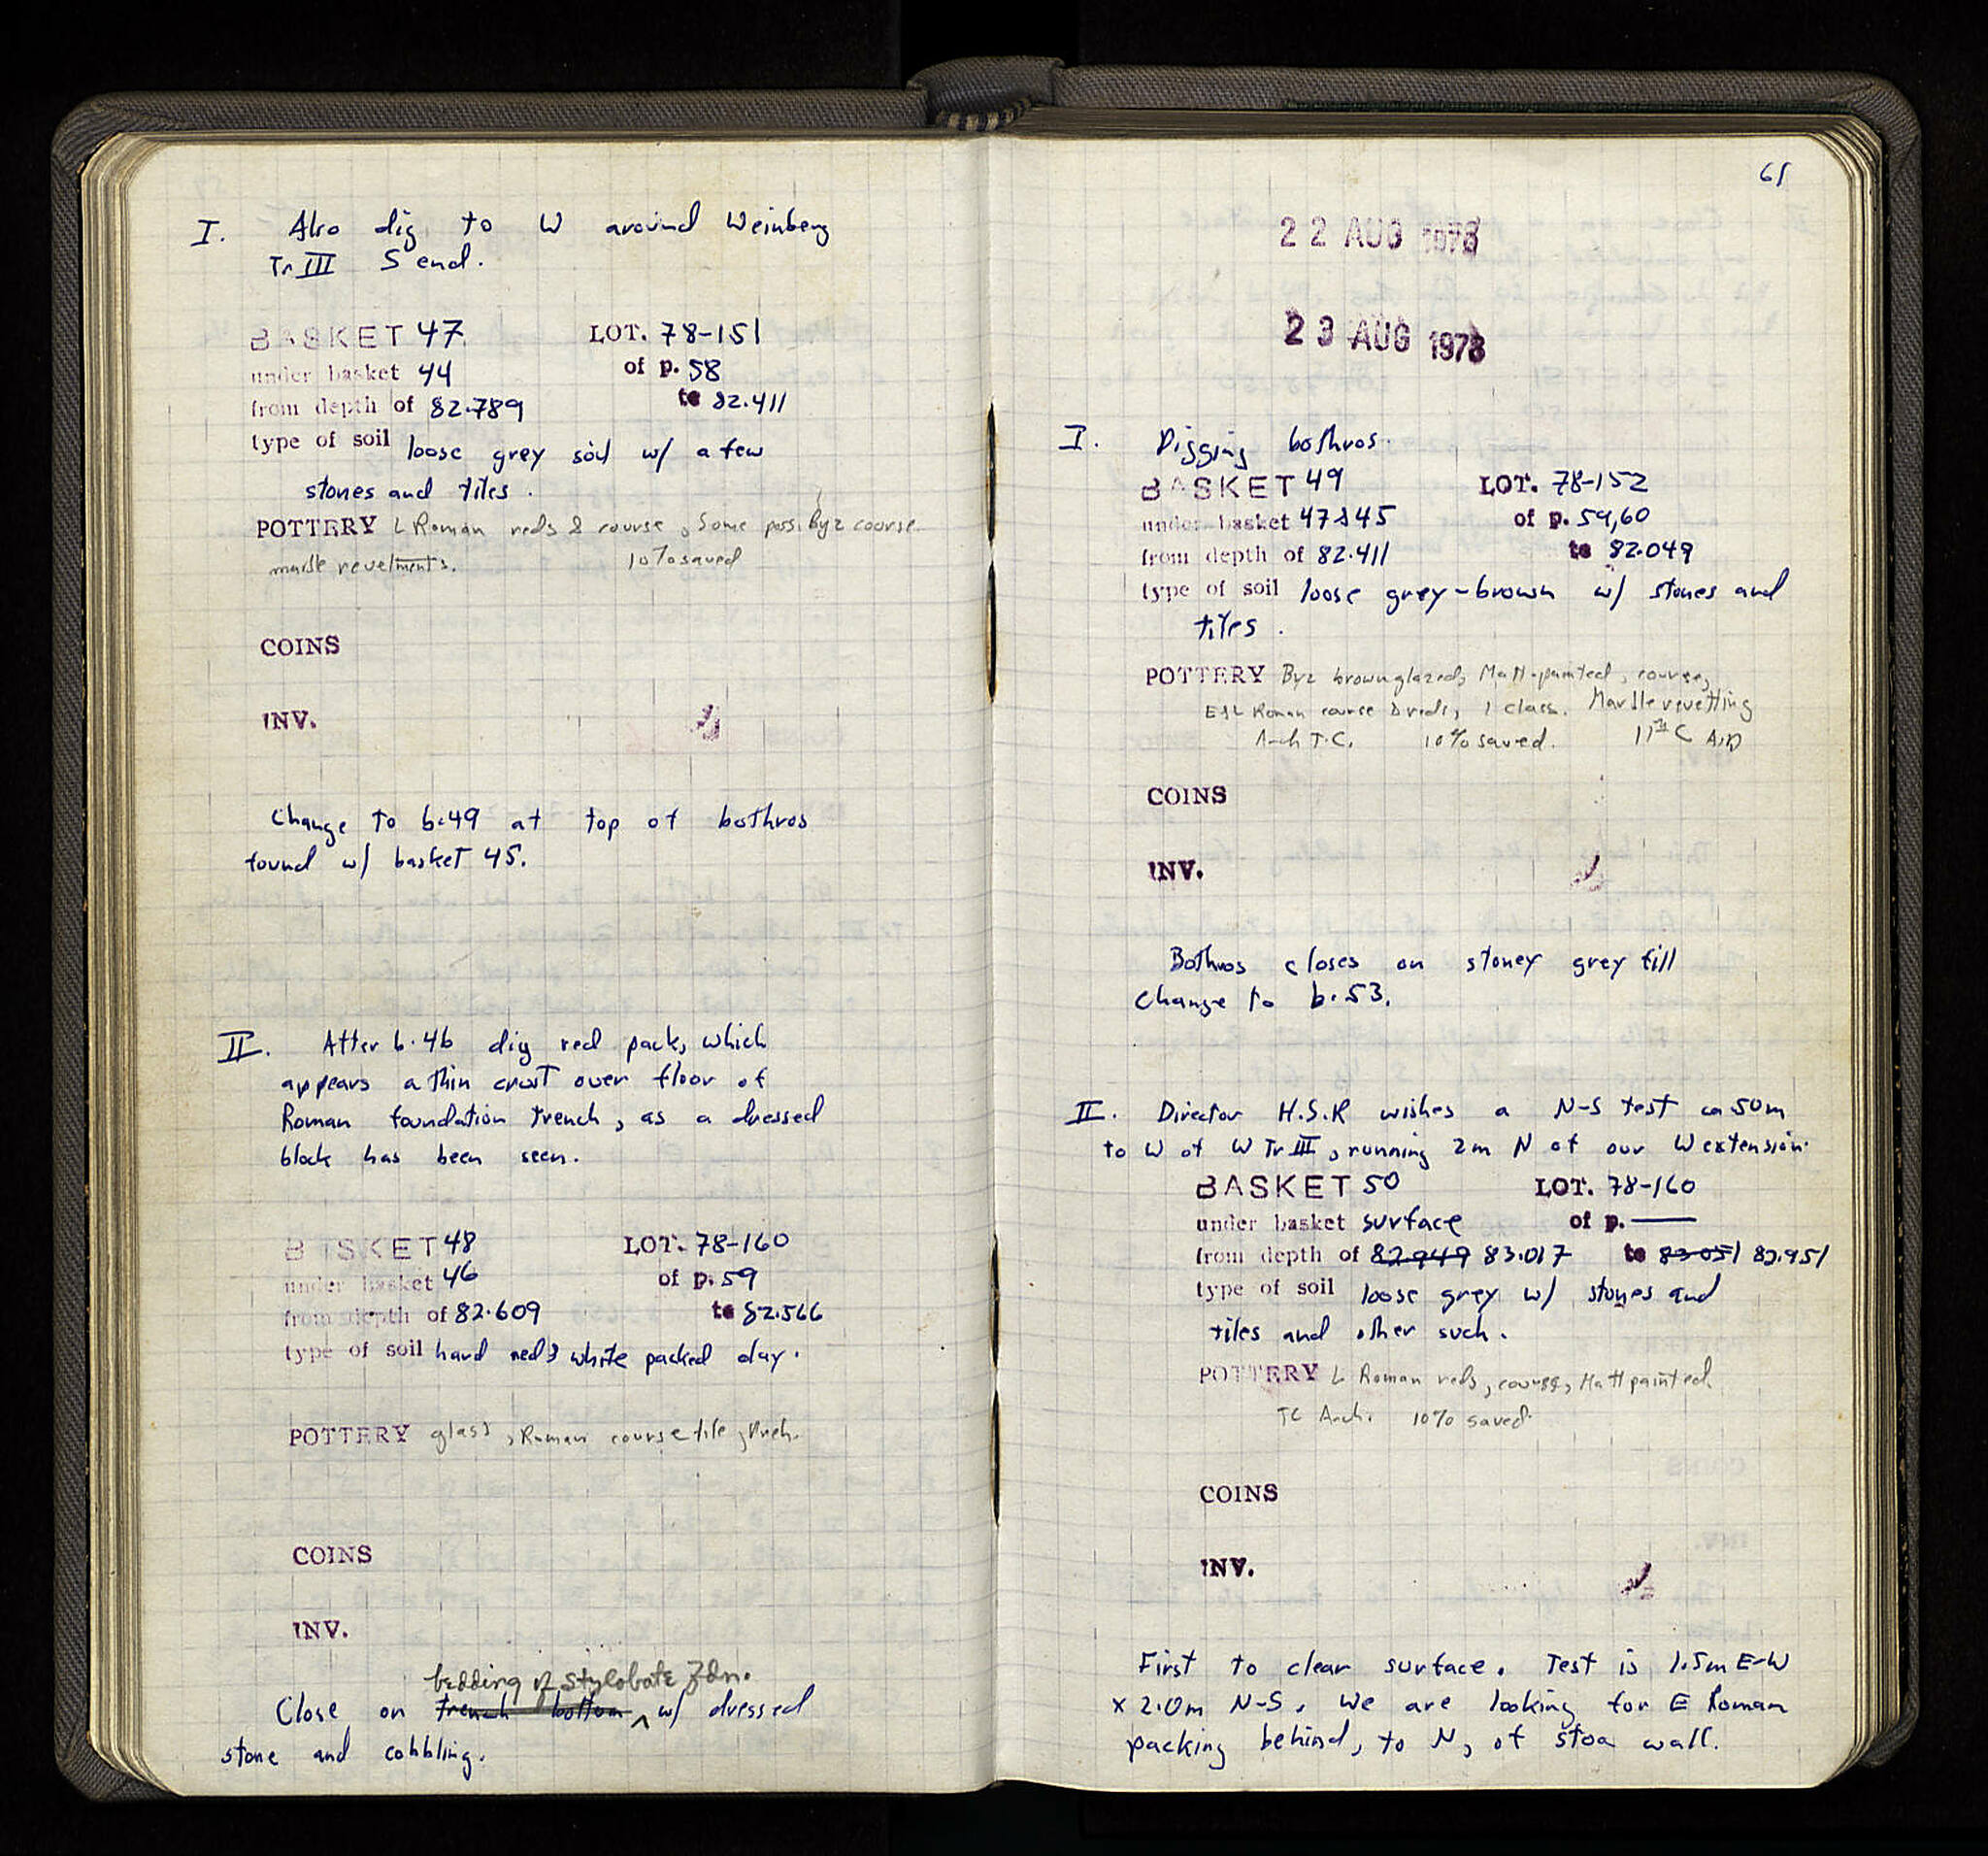 I. Also dig to W around Weinberg
Tr III S end.
BASKET 47 LOT. 78-151
under basket 44 of p. 58
from depth of 82.789 to 82.411
type of soil loose grey soil w/ a few
stones and tiles.
POTTERY L Roman reds & course, Some poss. Byz course
marble revetments. 10% saved
COINS
INV.
Change to b.49 at top of bothros
found w/ basket 45.
II. After b.46 dig red pack, which
appears a thin crust over floor of
Roman foundation trench, as a dressed
block has been seen.
BASKET 48 LOT. 78-160
under basket 46 of p. 59
from depth of 82.609 to 82.566
type of soil hard red & white packed clay.
POTTERY glass, Roman course tile, Arch.
COINS
INV.
bedding of stylobate fdn.
Close on trench bottom ^ w/ dressed
stone and cobbling.
61
22 AUG 1978
23 AUG 1978
I. Digging bothros.
BASKET 49 LOT. 78-152
under basket 47&45 of p. 59,60
from depth of 82.411 to 82.049
type of soil loose grey-brown w/ stones and
tiles.
POTTERY Byz brown glazed, Matt-painted, course,
E&L Roman course & reds, 1 class. Marble revetting
Arch T.C. 10% saved. 11th C AD
COINS
INV.
Bothros closes on stoney grey fill
change to b.53.
II. Director H.S.R wishes a N-S test ca 50m
to W of W Tr III, running 2m N of our W extension.
BASKET 50 LOT. 78-160
under basket surface of p. —
from depth of 82.949 83.017 to 83.051 82.951
type of soil loose grey w/ stones and
tiles and other such.
POTTERY L Roman reds, course, Matt painted
TC Arch. 10% saved.
COINS
INV.
First to clear surface. Test is 1.5m E-W
x 2.0m N-S. We are looking for E Roman
packing behind, to N, of stoa wall.